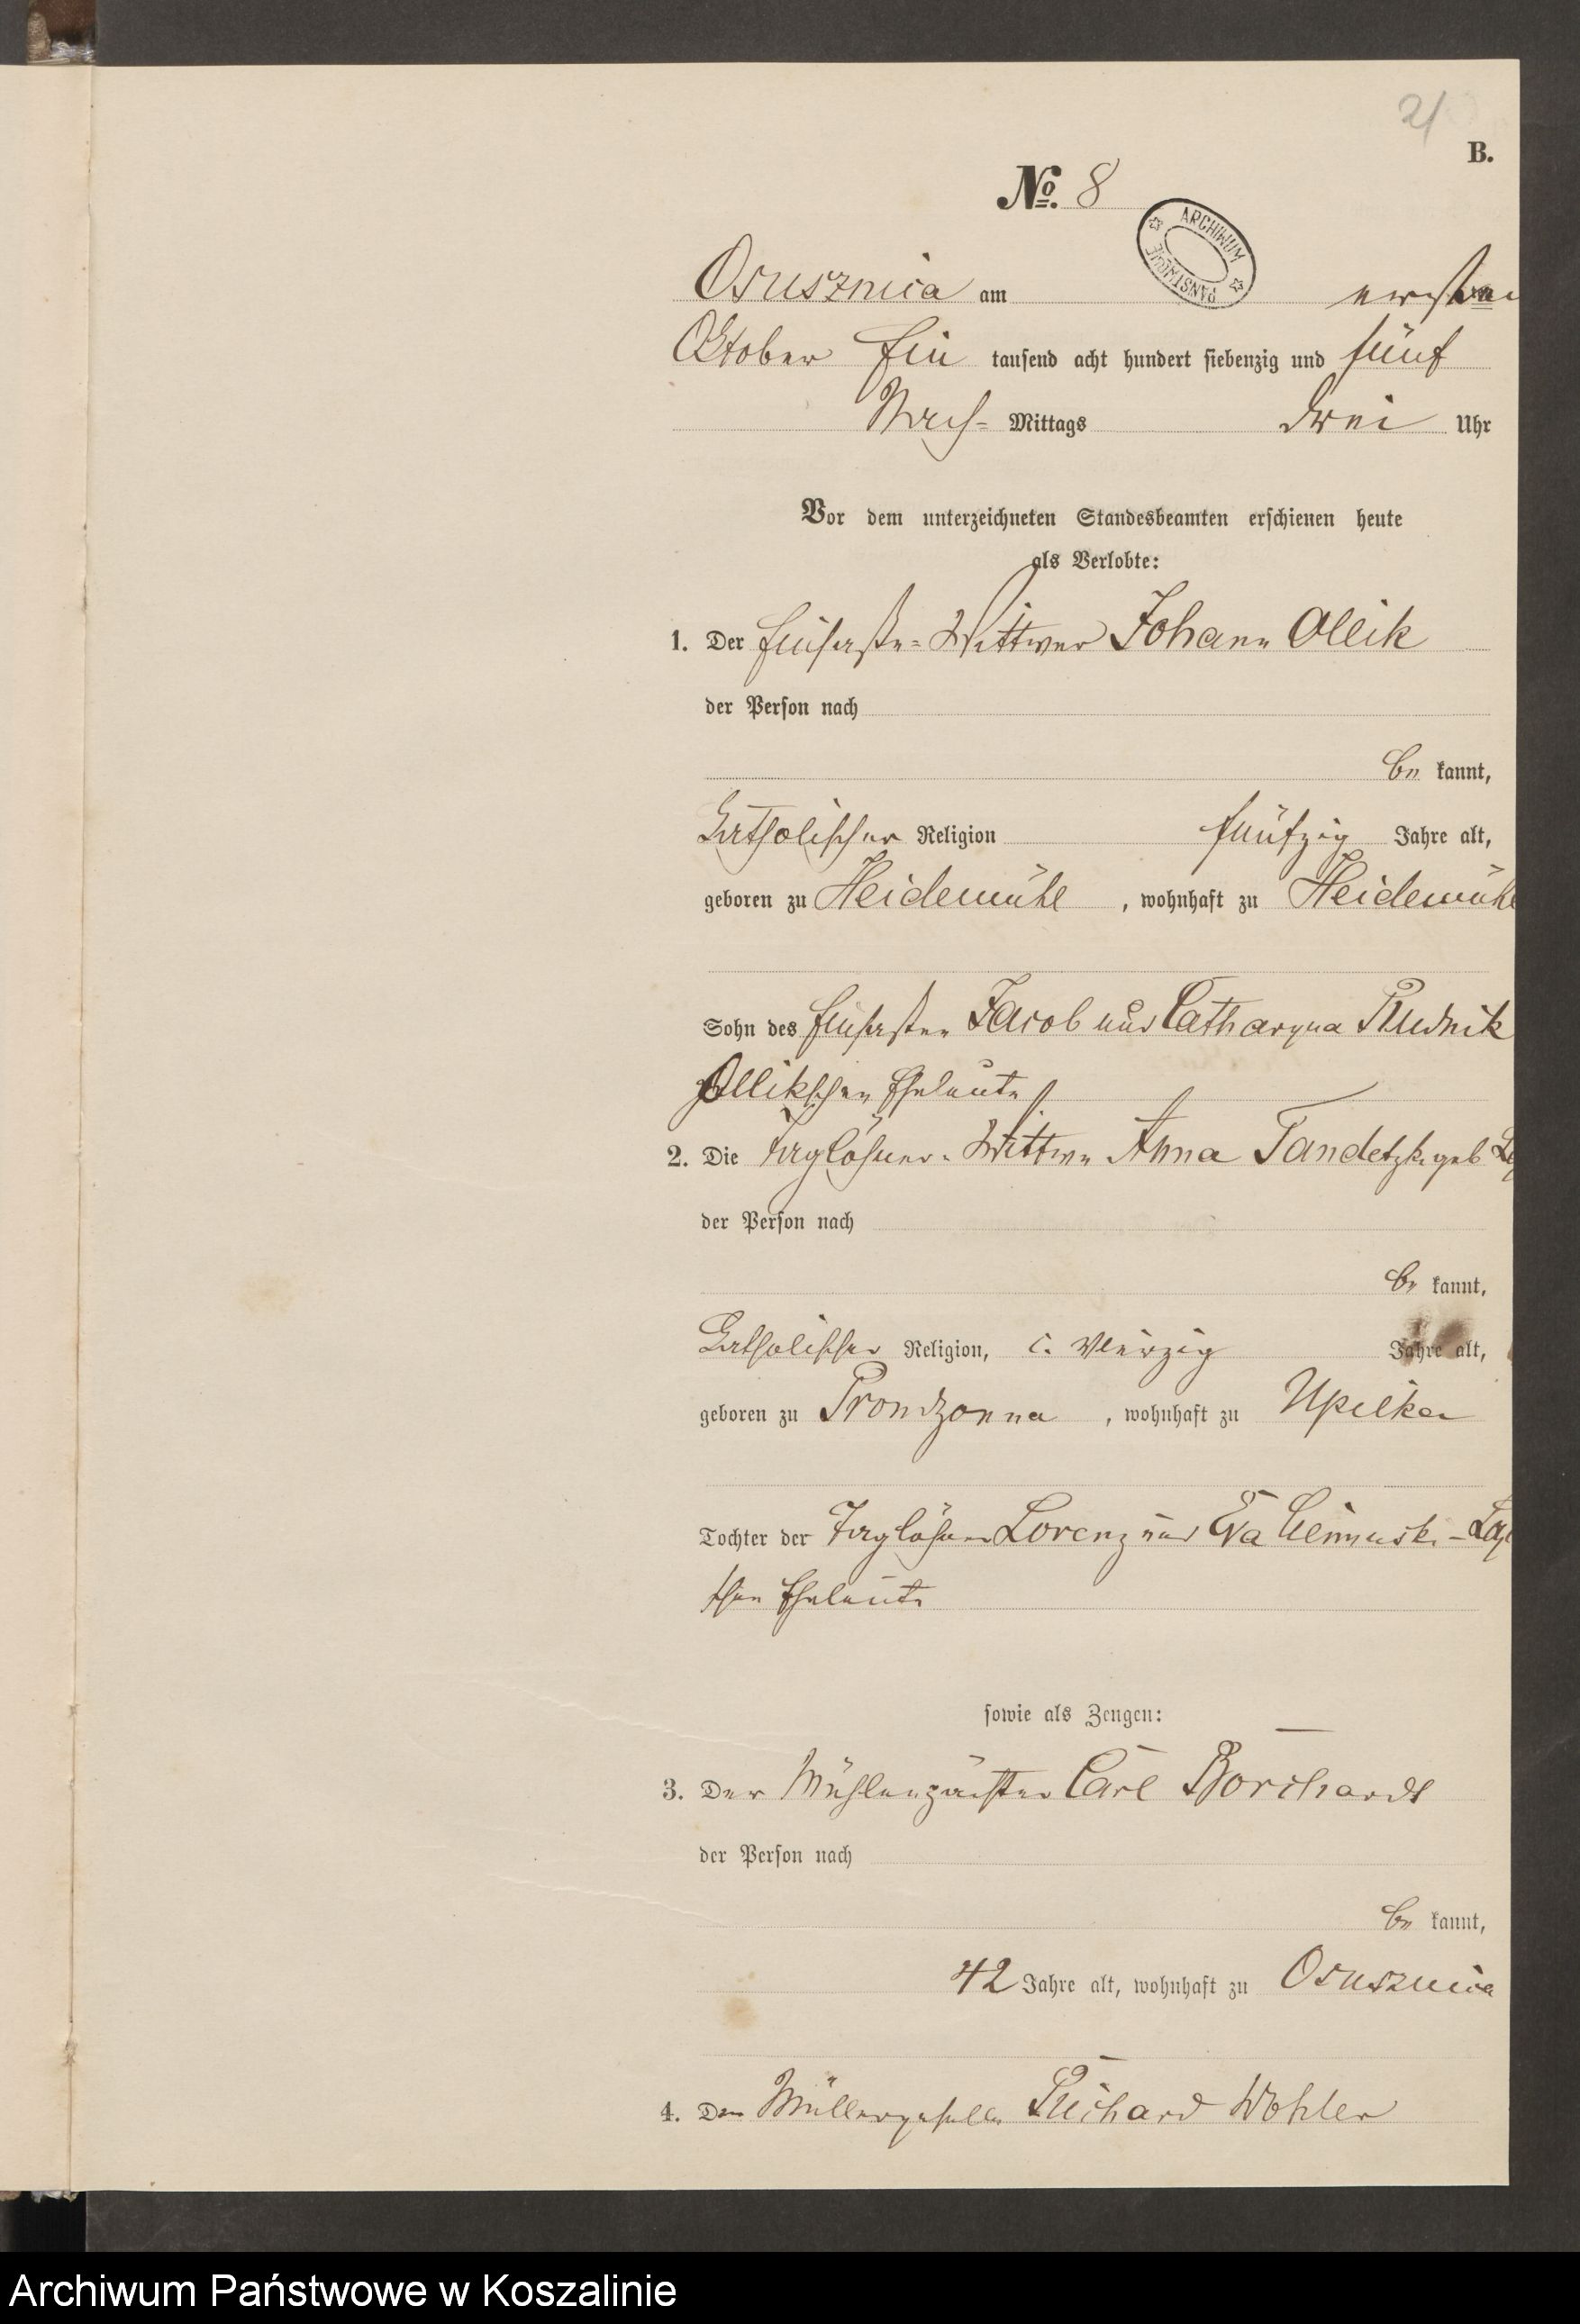 21
B.
No. 8
ARCHIWUM PAŃSTWOWE
Osusznica am ersten
Oktober Ein tausend acht hundert siebenzig und fünf
Nach- Mittags drei Uhr
Vor dem unterzeichneten Standesbeamten erschienen heute
als Verlobte:
1. Der Einsasse- Wittwer Johann Ollik
der Person nach
be kannt,
katholischer Religion fünfzig Jahre alt,
geboren zu Heidemühl, wohnhaft zu Heidemühl
Sohn des Einsassen Jacob und Catharyna Rudnik
Ollikschen Eheleute
2. Die Taglöhner- Wittwe Anna Tandetzki geb
der Person nach
be kannt,
katholischer Religion, vierzig Jahre alt,
geboren zu Prondzonna, wohnhaft zu Upilka
Tochter der Taglöhner Lorenz und Eva
schen Eheleute
sowie als Zeugen:
3. Der Mühlenpächter Carl Borchardt
der Person nach
be kannt,
42 Jahre alt, wohnhaft zu Osusznica
4. Der Müllergeselle Richard Wohler
Archiwum Państwowe w Koszalinie